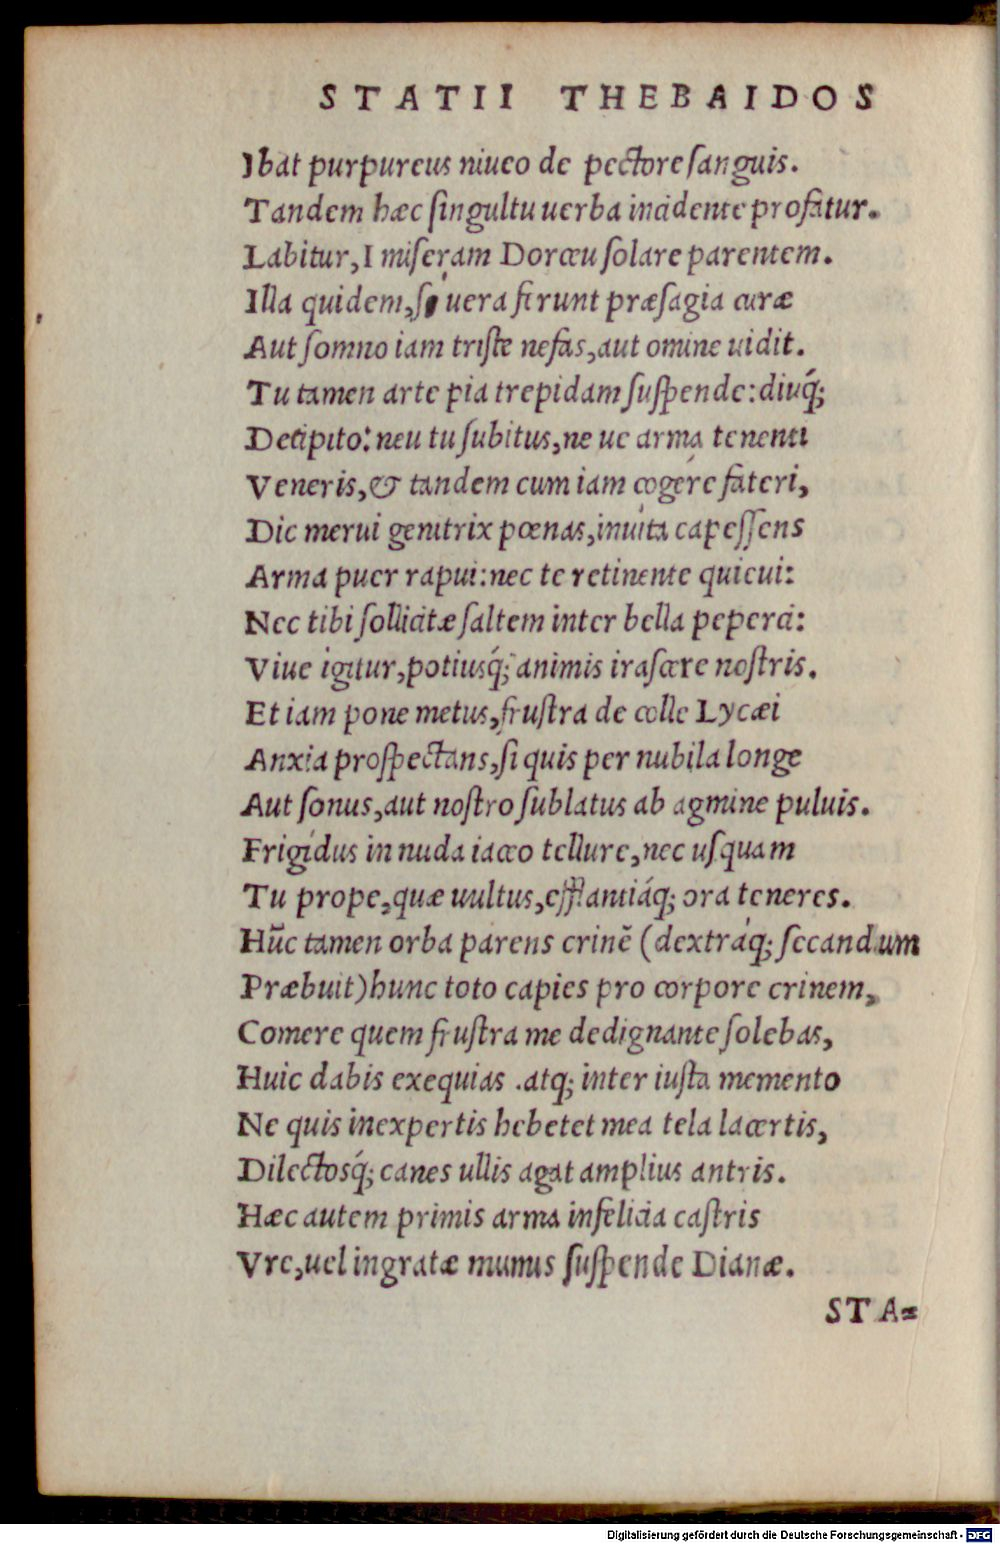 STATII THEBAIDOS
Ibat purpureus niueo de pectore sanguis.
Tandem hæc singultu uerba incidente profatur.
Labitur, I miseram Dorceu solare parentem.
Illa quidem, si uera ferunt præsagia curæ
Aut somno iam triste nefas, aut omine uidit.
Tu tamen arte pia trepidam suspende: diuq́;
Decipito: neu tu subitus, ne ue arma tenenti
Veneris, & tandem cum iam cogére fateri,
Dic merui genitrix pœnas, inuita capessens
Arma puer rapui: nec te retinente quieui:
Nec tibi sollicitæ saltem inter bella peperci:
Viue igitur, potiusq́; animis irascere nostris.
Et iam pone metus, frustra de colle Lycæi
Anxia prospectans, si quis per nubila longe
Aut sonus, aut nostro sublatus ab agmine puluis.
Frigidus in nuda iaceo tellure, nec usquam
Tu prope, quæ uultus, efflantiáq; ora teneres.
Hũc tamen orba parens crinẽ (dextráq; secandum
Præbuit) hunc toto capies pro corpore crinem,
Comere quem frustra me dedignante solebas,
Huic dabis exequias .atq; inter iusta memento
Ne quis inexpertis hebetet mea tela lacertis,
Dilectosq́; canes ullis agat amplius antris.
Hæc autem primis arma infelicia castris
Vre, uel ingratæ munus suspende Dianæ.
STA=
Digitalisierung gefördert durch die Deutsche Forschungsgemeinschaft - DFG